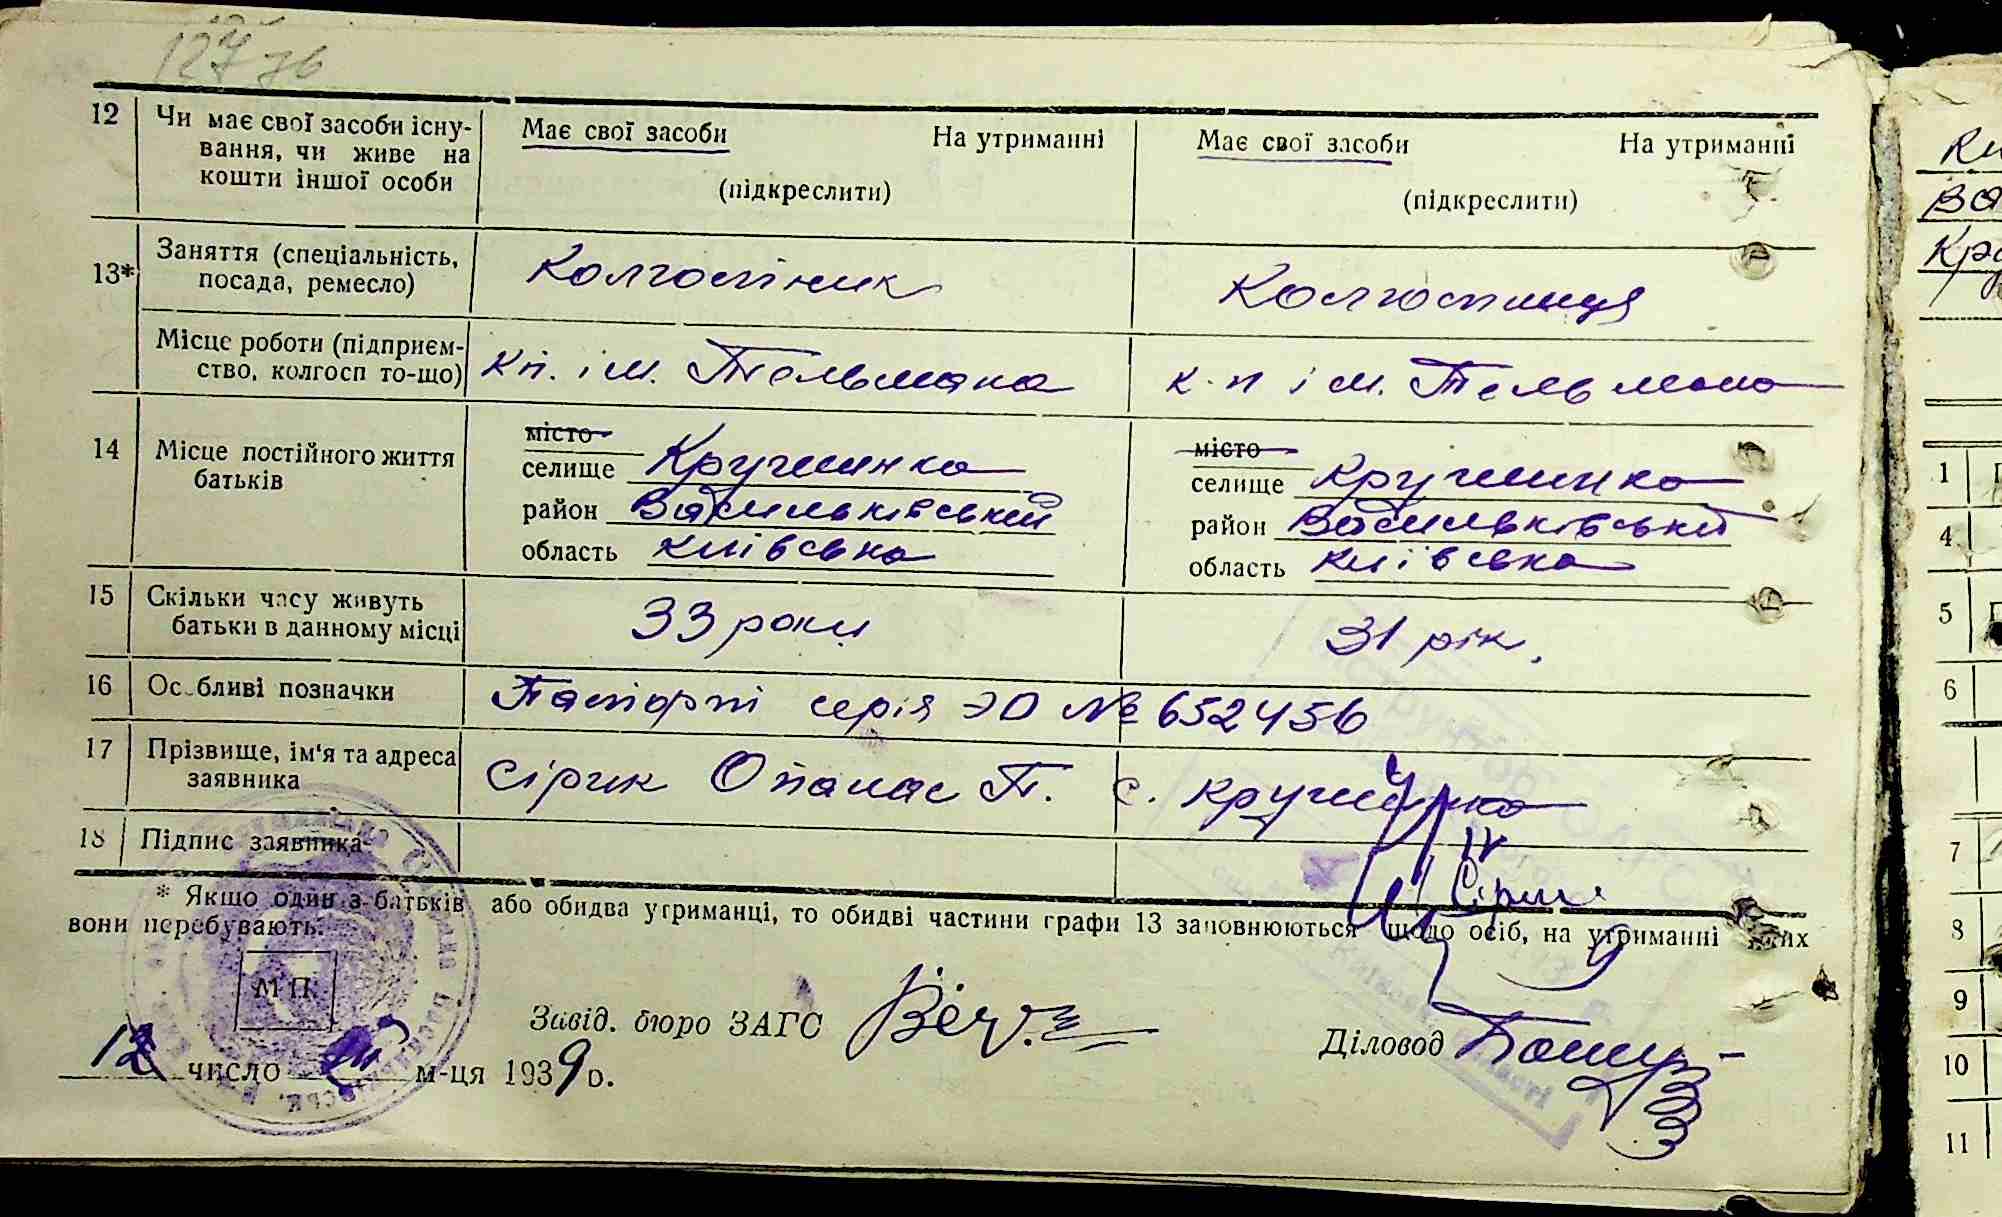 127 зв
12 Чи має свої засоби існу-
вання, чи живе на
кошти іншої особи
Має свої засоби На утриманні
(підкреслити)
Має свої засоби На утриманні
(підкреслити)
13* Заняття (спеціальність,
посада, ремесло)
Колгоспник
Колгоспниця
Місце роботи (підприєм-
ство, колгосп то-що)
к-п. ім. Тельмана
к-п ім. Тельмана
14 Місце постійного життя
батьків
місто
селище Кручинка
район Васильківський
область Київська
місто
селище Кручинка
район Васильківський
область Київська
15 Скільки часу живуть
батьки в данному місці
33 роки
31 рік.
16 Особливі позначки
Паспорт серія ЭО № 652456
17 Прізвище, ім'я та адреса
заявника
Сірик Опанас П. с. Кручинка
18 Підпис заявника
Сірик
* Якщо один з батьків або обидва утриманці, то обидві частини графи 13 заповнюються щодо осіб, на утриманні яких
вони перебувають.
МП
Завід. бюро ЗАГС
Діловод
12 число м-ця 1939 р.
1
4
5
6
7
8
9
10
11